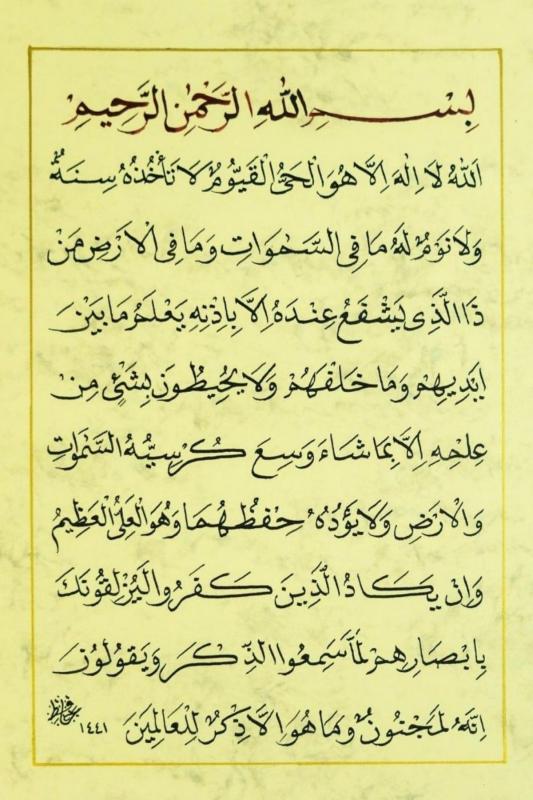 بِسْمِ اللهِ الرَّحْمٰنِ الرَّحِيمِ
اَللهُ لَا اِلٰهَ اِلَّا هُوَ الْحَيُّ الْقَيُّومُ لَا تَأْخُذُهُ سِنَةٌ
وَلَا نَوْمٌ لَهُ مَا فِي السَّمٰوَاتِ وَمَا فِي الْاَرْضِ مَنْ
ذَا الَّذِي يَشْفَعُ عِنْدَهُ اِلَّا بِاِذْنِهِ يَعْلَمُ مَا بَيْنَ
اَيْدِيهِمْ وَمَا خَلْفَهُمْ وَلَا يُحِيطُونَ بِشَيْءٍ مِنْ
عِلْمِهِ اِلَّا بِمَا شَاءَ وَسِعَ كُرْسِيُّهُ السَّمٰوَاتِ
وَالْاَرْضَ وَلَا يَؤُدُهُ حِفْظُهُمَا وَهُوَ الْعَلِيُّ الْعَظِيمُ
وَاِنْ يَكَادُ الَّذِينَ كَفَرُوا لَيُزْلِقُونَكَ
بِاَبْصَارِهِمْ لَمَّا سَمِعُوا الذِّكْرَ وَيَقُولُونَ
اِنَّهُ لَمَجْنُونٌ وَمَا هُوَ اِلَّا ذِكْرٌ لِلْعَالَمِينَ
١٤٤١